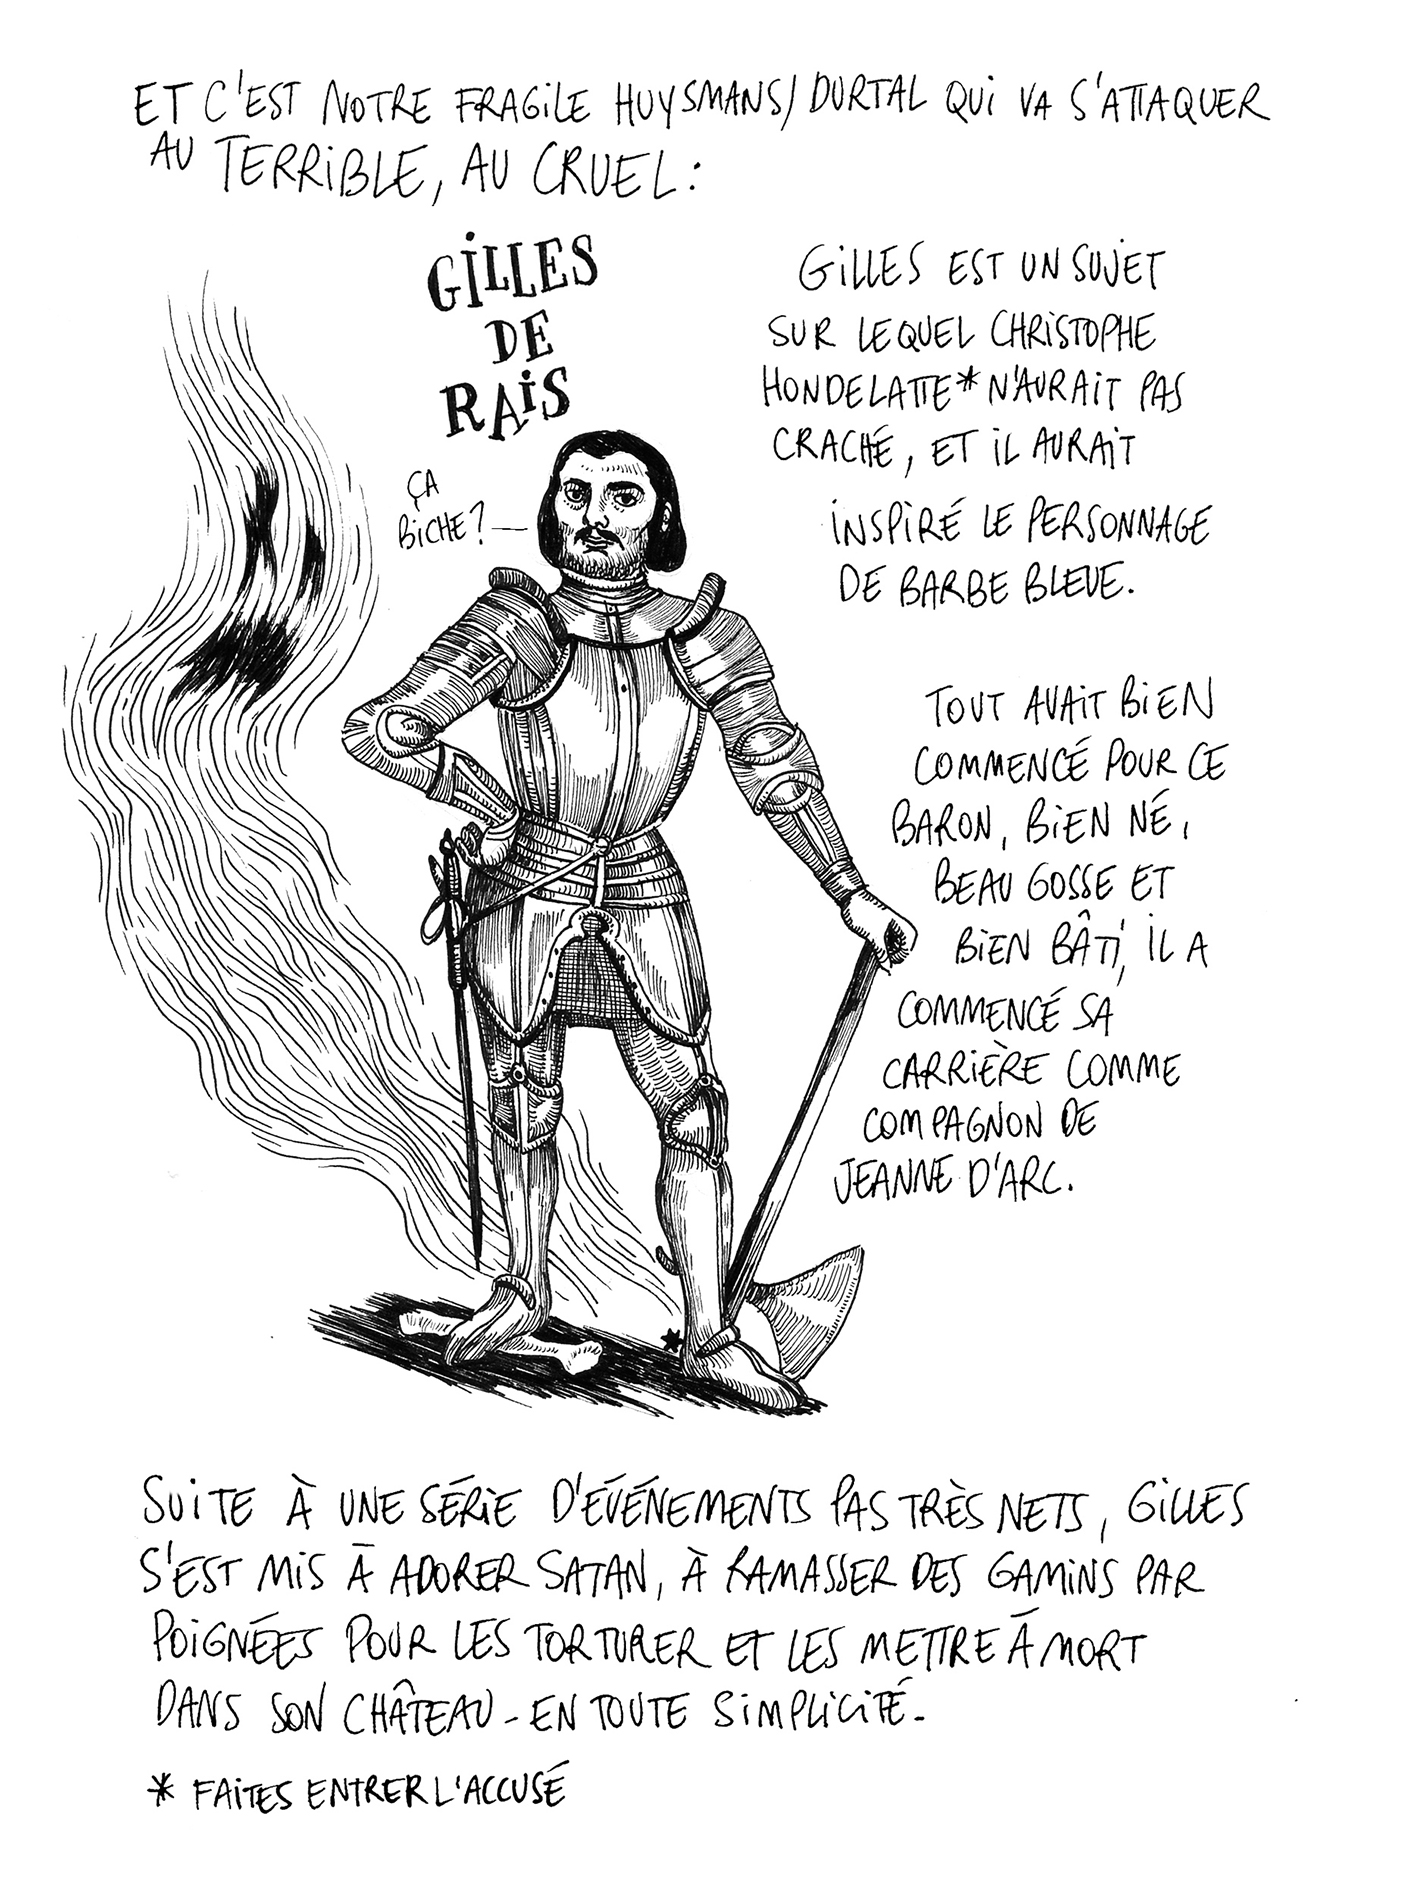 ET C'EST NOTRE FRAGILE HUYSMANS/DURTAL QUI VA S'ATTAQUER
AU TERRIBLE, AU CRUEL :
GILLES
DE
RAIS
ÇA
BICHE ?
GILLES EST UN SUJET
SUR LEQUEL CHRISTOPHE
HONDELATTE* N'AURAIT PAS
CRACHÉ, ET IL AURAIT
INSPIRÉ LE PERSONNAGE
DE BARBE BLEUE.
TOUT AVAIT BIEN
COMMENCÉ POUR CE
BARON, BIEN NÉ,
BEAU GOSSE ET
BIEN BÂTI, IL A
COMMENCÉ SA
CARRIÈRE COMME
COMPAGNON DE
JEANNE D'ARC.
SUITE À UNE SÉRIE D'ÉVÉNEMENTS PAS TRÈS NETS, GILLES
S'EST MIS À ADORER SATAN, À RAMASSER DES GAMINS PAR
POIGNÉES POUR LES TORTURER ET LES METTRE À MORT
DANS SON CHÂTEAU - EN TOUTE SIMPLICITÉ.
* FAITES ENTRER L'ACCUSÉ